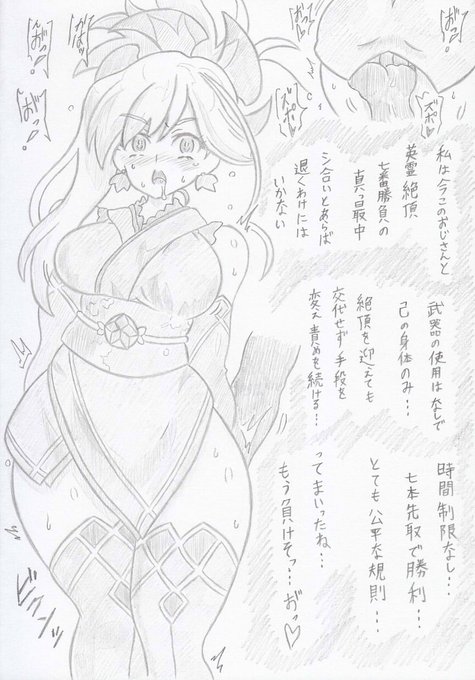 おっ♡
おっ♡
おっ♡
おっ♡
おっ♡
ズポ♡
ズポ♡
私は今このおじさんと
英霊絶頂
七番勝負の
真っ最中
シン合いとあらば
退くわけには
いかない
武器の使用はなしで
己の身体のみ…
絶頂を迎えても
交代せず手段を
変え責めを続ける…
時間制限なし…
七本先取で勝利…
とても公平な規則…
ってまいったね…
もう負けそっ…おっ♡
ビクンッ